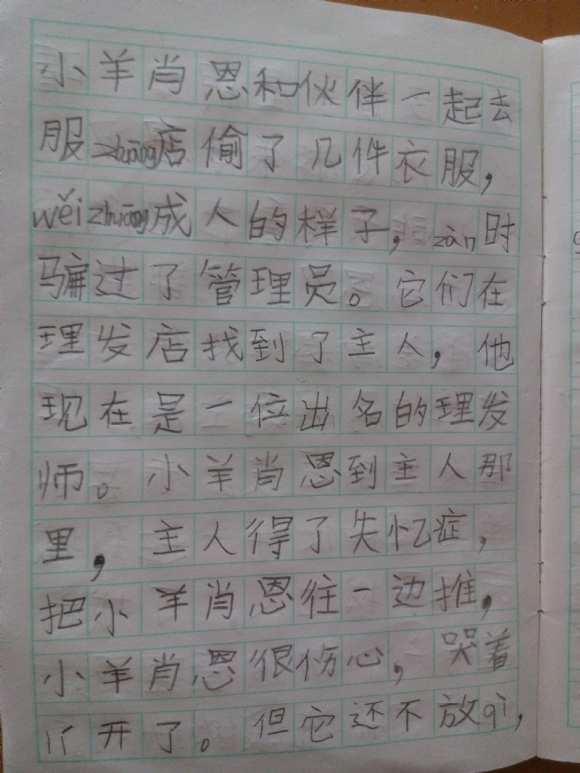 小羊肖恩和伙伴一起去
服zhuāng店偷了几件衣服，
wěizhuāng成人的样子，zàn时
骗过了管理员。它们在
理发店找到了主人，他
现在是一位出名的理发
师。小羊肖恩到主人那
里，主人得了失忆症，
把小羊肖恩往一边推，
小羊肖恩很伤心，哭着
开了。但它还不放qì，